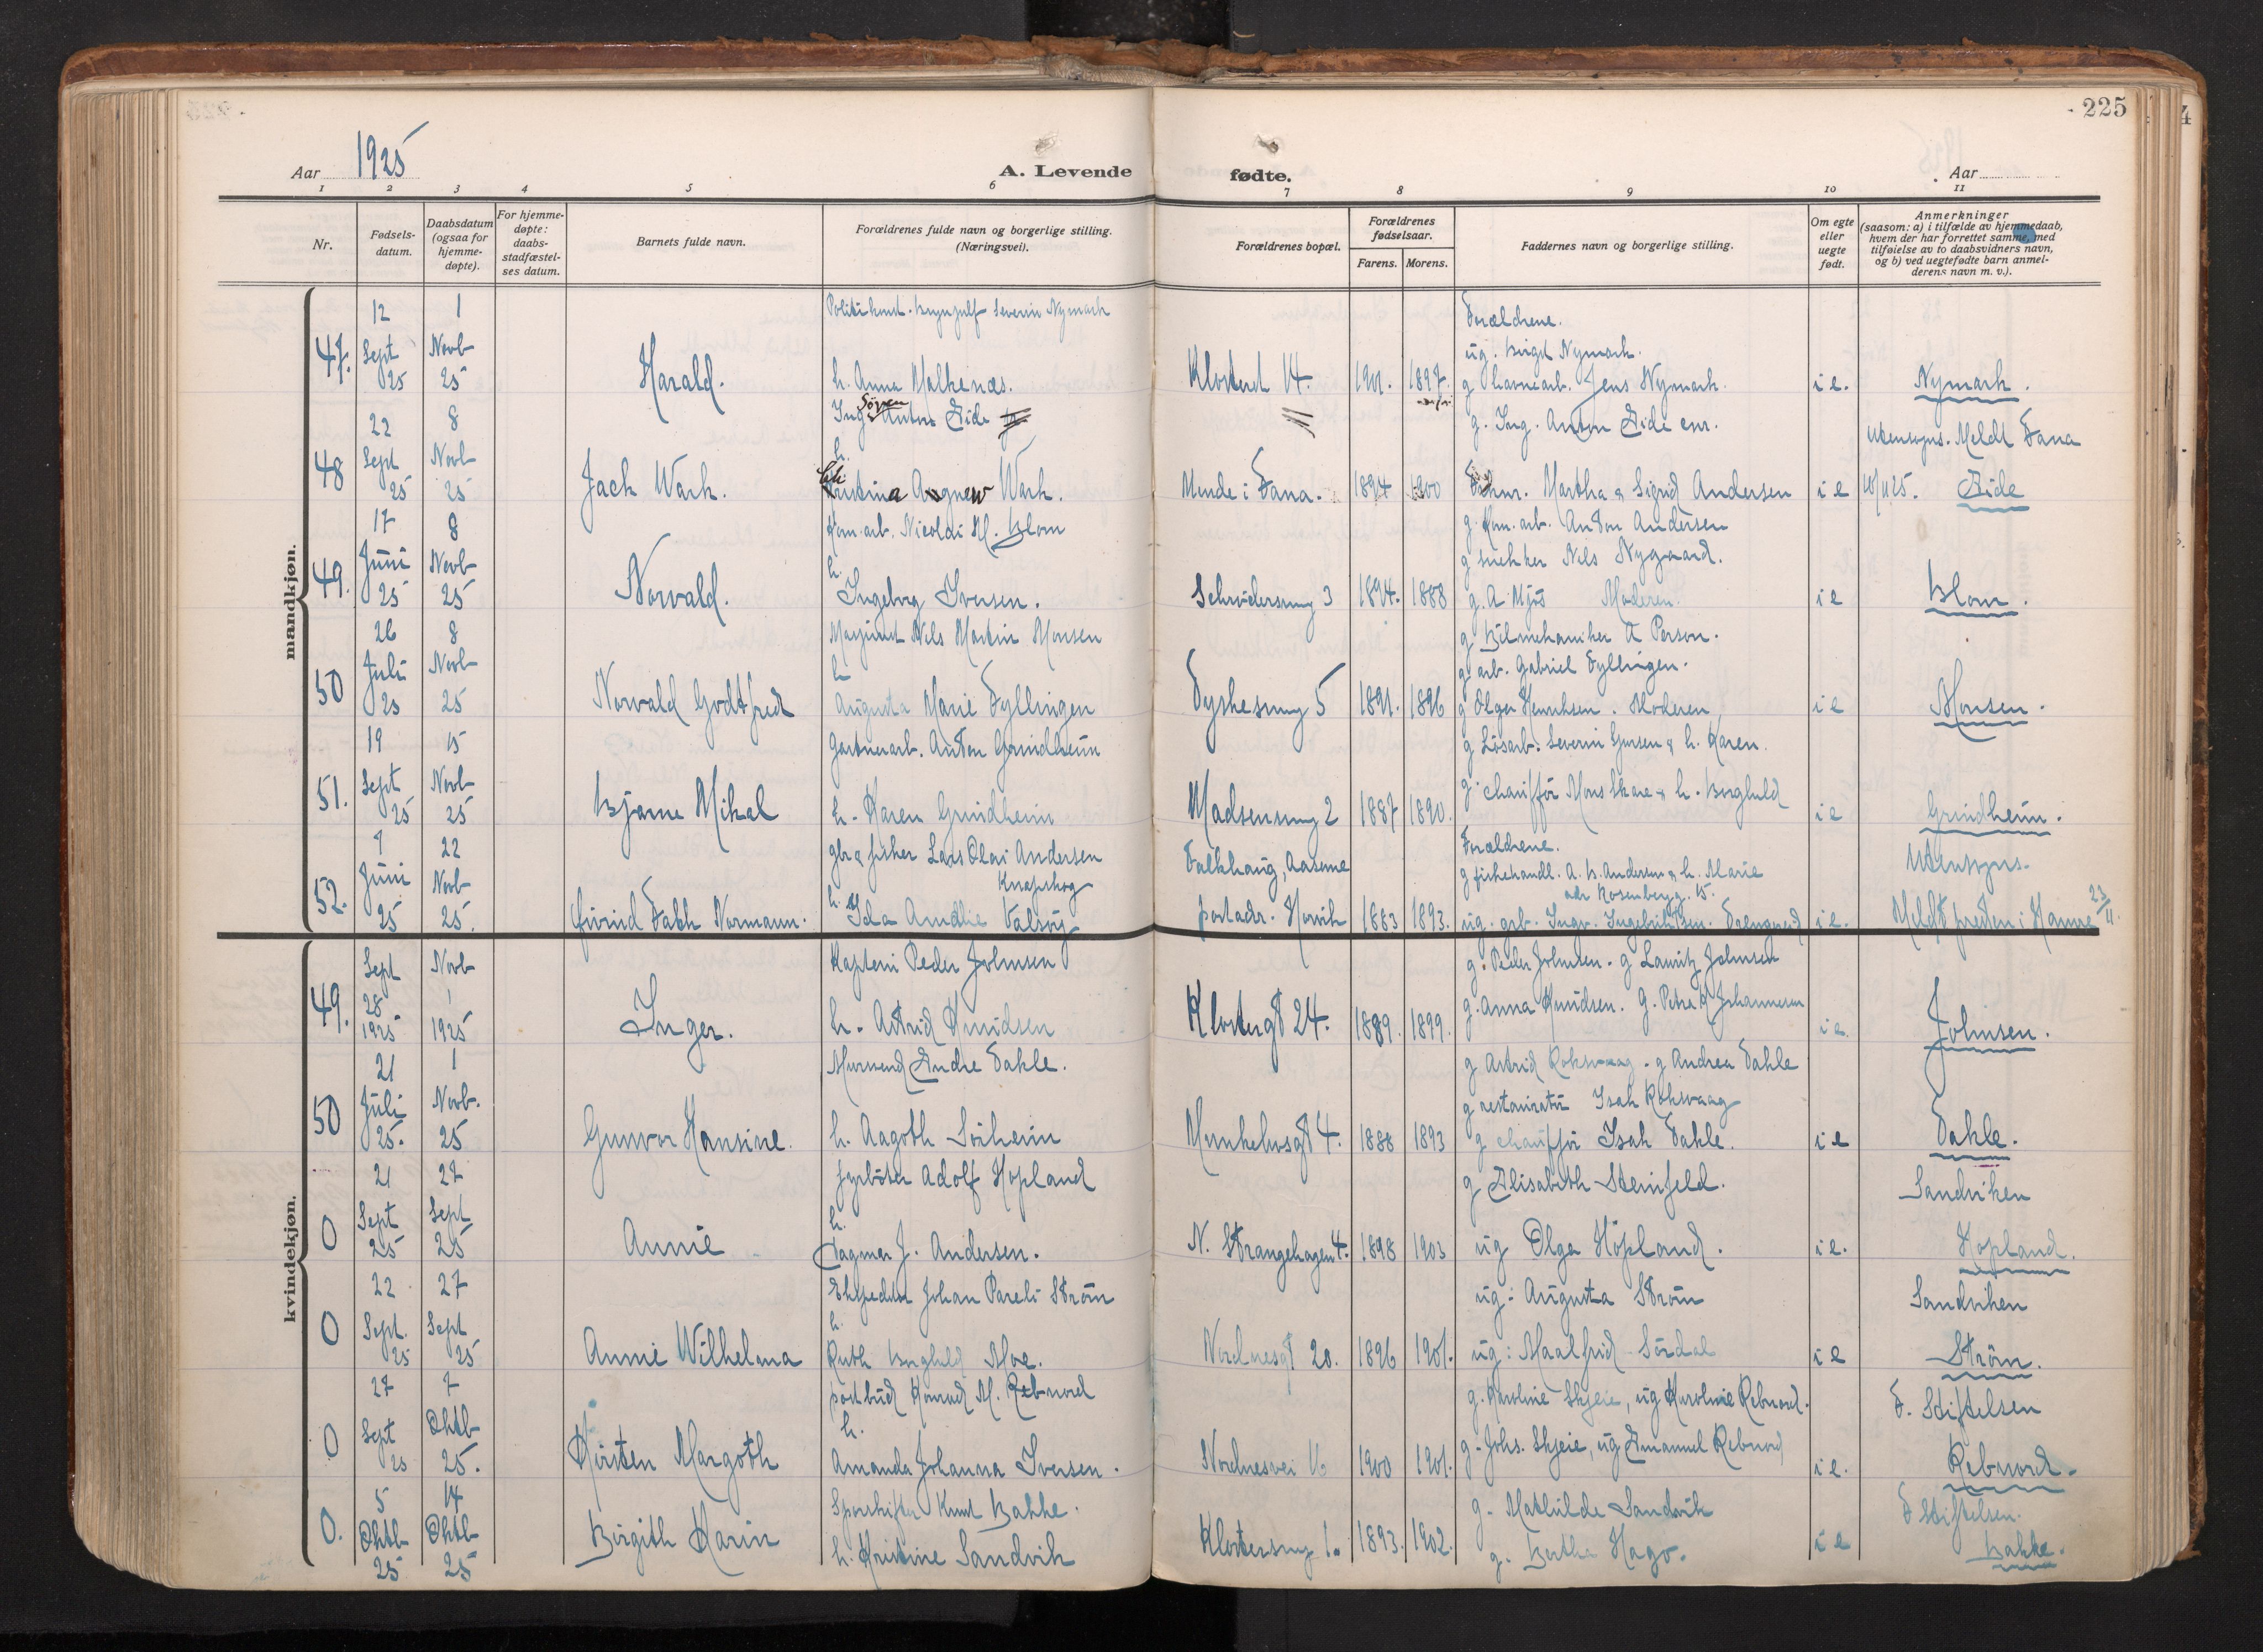 225
1925
Aar
A. Levende
fødte.
Aar
1 2 3 4 5 6 7 8 9 10 11
Nr.
Fødsels-
datum.
Daabsdatum
(ogsaa for
hjemme-
døpte).
For hjemme-
døpte:
daabs-
stadfæstel-
ses datum.
Barnets fulde navn.
Forældrenes fulde navn og borgerlige stilling.
(Næringsvei).
Forældrenes bopæl.
Forældrenes
fødselsaar.
Farens. Morens.
Faddernes navn og borgerlige stilling.
Om egte
eller
uegte
født.
Anmerkninger
(saasom: a) i tilfælde av hjemmedaab,
hvem der har forrettet samme, med
tilføielse av to daabsvidners navn,
og b) ved uegtefødte barn anmel-
derens navn m. v.).
mandkjøn.
47.
12
Sept
25
1
Novb
25
Harald.
Severin Nymark
h. Anna Malkenæs.
Klostert 14.
1901. 1897.
Forældrene.
ug. Birgit Nymark.
g havnearb. Jens Nymark.
i e.
Nymark.
48
22
Sept
25
8
Novb
25
Jack Wark.
Ing. Søren Anton Eide
h.
Agnew Wark.
Minde i Fana.
1894 1900
g. Ing. Anton Eide
Martha & Sigrid Andersen
i e
utensogns. Meldt Fana
Eide
49.
17
Juni
25
8
Novb
25
Norvald.
Kom. arb. Nicolai M. Blom
h.
Ingeborg Iversen.
Schrødersmug 3
1894. 1888
g. Kom. arb. Anton Andersen
g snekker Nils Nygaard.
g. A. Mjøs Moderen.
i e
Blom.
50
26
Juli
25
8
Novb
25
Norvald Godtfred
Maskinist Nils Martin Monsen
h
Augusta Marie Fyllingen
Dyskesmug 5
1891. 1896
g Bilmekaniker A Person.
g arb. Gabriel Fyllingen.
g Olga Henriksen. Moderen
i e
Monsen.
51.
19
Sept
25
15
Novb
25
Bjarne Mikal
Gartnerarb. Anton Grindheim
h. Karen Grindheim
Madsensmug 2
1887 1890.
g Løsarb. Severin & h. Karen.
g chauffør Mons Skare & h. Borghild
i e
Grindheim.
52.
Juni
25
22
Novb
25.
Øivind Falch Normann.
gbr & fisker Lars Olai Andersen
Knapskog
h. Ida Amalie Valsvig
Falkhaug, Aasene
postadr. Hervik
1883 1893.
Forældrene.
g fiskehandl. A. B. Andersen & h. Marie
adr Rosenbergg. 15.
i e.
Utensogns.
Meldt presten i Hamre 23/11
kvindekjøn.
49.
Sept
28
1925
Novb
1
1925
Inger.
Kaptein Peder Johnsen
h. Astrid Knudsen
Klostergt 24.
1889. 1899.
g. Peder Johnsen. g Lauritz Johnsen
g. Anna Knudsen. g. Petra K Johannesen
i e.
Johnsen.
50
21
Juli
25.
1
Novb.
25
Gunvor Hansine.
Murmand Andre Dahle.
h. Aagoth Sørheim
Munkebusgt 4.
1888 1893
g Astrid Roksvaag. g Andrea Dahle
g restauratør Isak Roksvaag
g chauffør Isak Dahle.
i e
Dahle.
0
21
Sept
25
27
Sept
25
Annie
fyrbøter Adolf Hopland
h.
Dagmar J. Andersen.
N. Strangehagen 4.
1898 1903
g Elisabeth Steinfeld.
ug Olga Hopland.
i e.
Sandviken
Hopland.
0
22
Sept.
25
27
Sept
25
Annie Wilhelma
Ekspeditør Johan Pareli Strøm
h.
Ruth Borghild Moe.
Nordnesgt 20.
1896 1901.
ug: Augusta Strøm
ug: Maalfrid Sørdal
i e
Sandviken
Strøm.
0
27
Sept
25
7
Oktb
25.
Kirsten Margoth
postbud Konrad M. Rebnord
h.
Amanda Johanna Iversen.
Nordnesvei 16
1900 1901.
g. Karoline Skjeie, ug Karoline Rebnord.
g. Johs. Skjeie, ug Emanuel Rebnord
i e.
F. Stiftelsen
Rebnord.
0.
5
Oktb
25
14
Oktb
25
Birgith Karin
Sporskifter Knut Bakke.
h. Kristine Sandvik
Klostersmug 10
1893. 1902.
g. Mathilde Sandvik
g. Bertha Hago.
i e
F Stiftelsen.
Bakke.